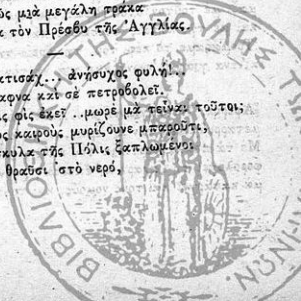 ὼς μιὰ μεγάλη τράκα
τὸν Πρέσβυ τῆς Ἀγγλίας.
ατισάχ... ἀνήσυχος φυλή!..
αφνα καὶ σὲ πετροβολεῖ.
ς φὶς ἐκεῖ ..μωρὲ μὰ τεῖναι τοῦτοι;
ος καιροὺς μυρίζουνε μπαροῦτι,
σκυλα τῆς Πόλις ξαπλωμένοι
θραῦσι στὸ νερό,
ΒΙΒΛΙΟ ΤΗΣ ΒΟΥΛΗΣ ΤΩΝ ΗΝΩΝ